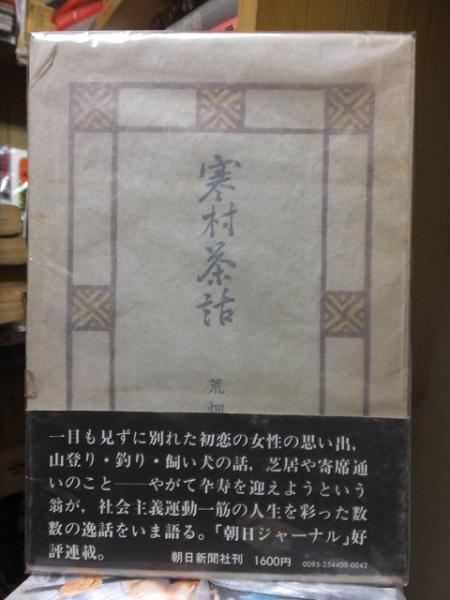 寒村茶話
荒畑
一目も見ずに別れた初恋の女性の思い出，
山登り・釣り・飼い犬の話，芝居や寄席通
いのこと――やがて卆寿を迎えようという
翁が，社会主義運動一筋の人生を彩った数
数の逸話をいま語る。「朝日ジャーナル」好
評連載。
朝日新聞社刊 1600円
0095-254408-0042